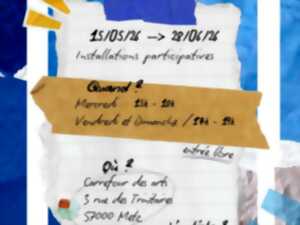 15/05/26 → 28/06/26
Installations participatives
Quand ?
Mercredi 14h - 18h
Vendredi et Dimanche / 14h - 18h
entrée libre
Où ?
Carrefour des arts
3 rue des Trinitaires
57000 Metz